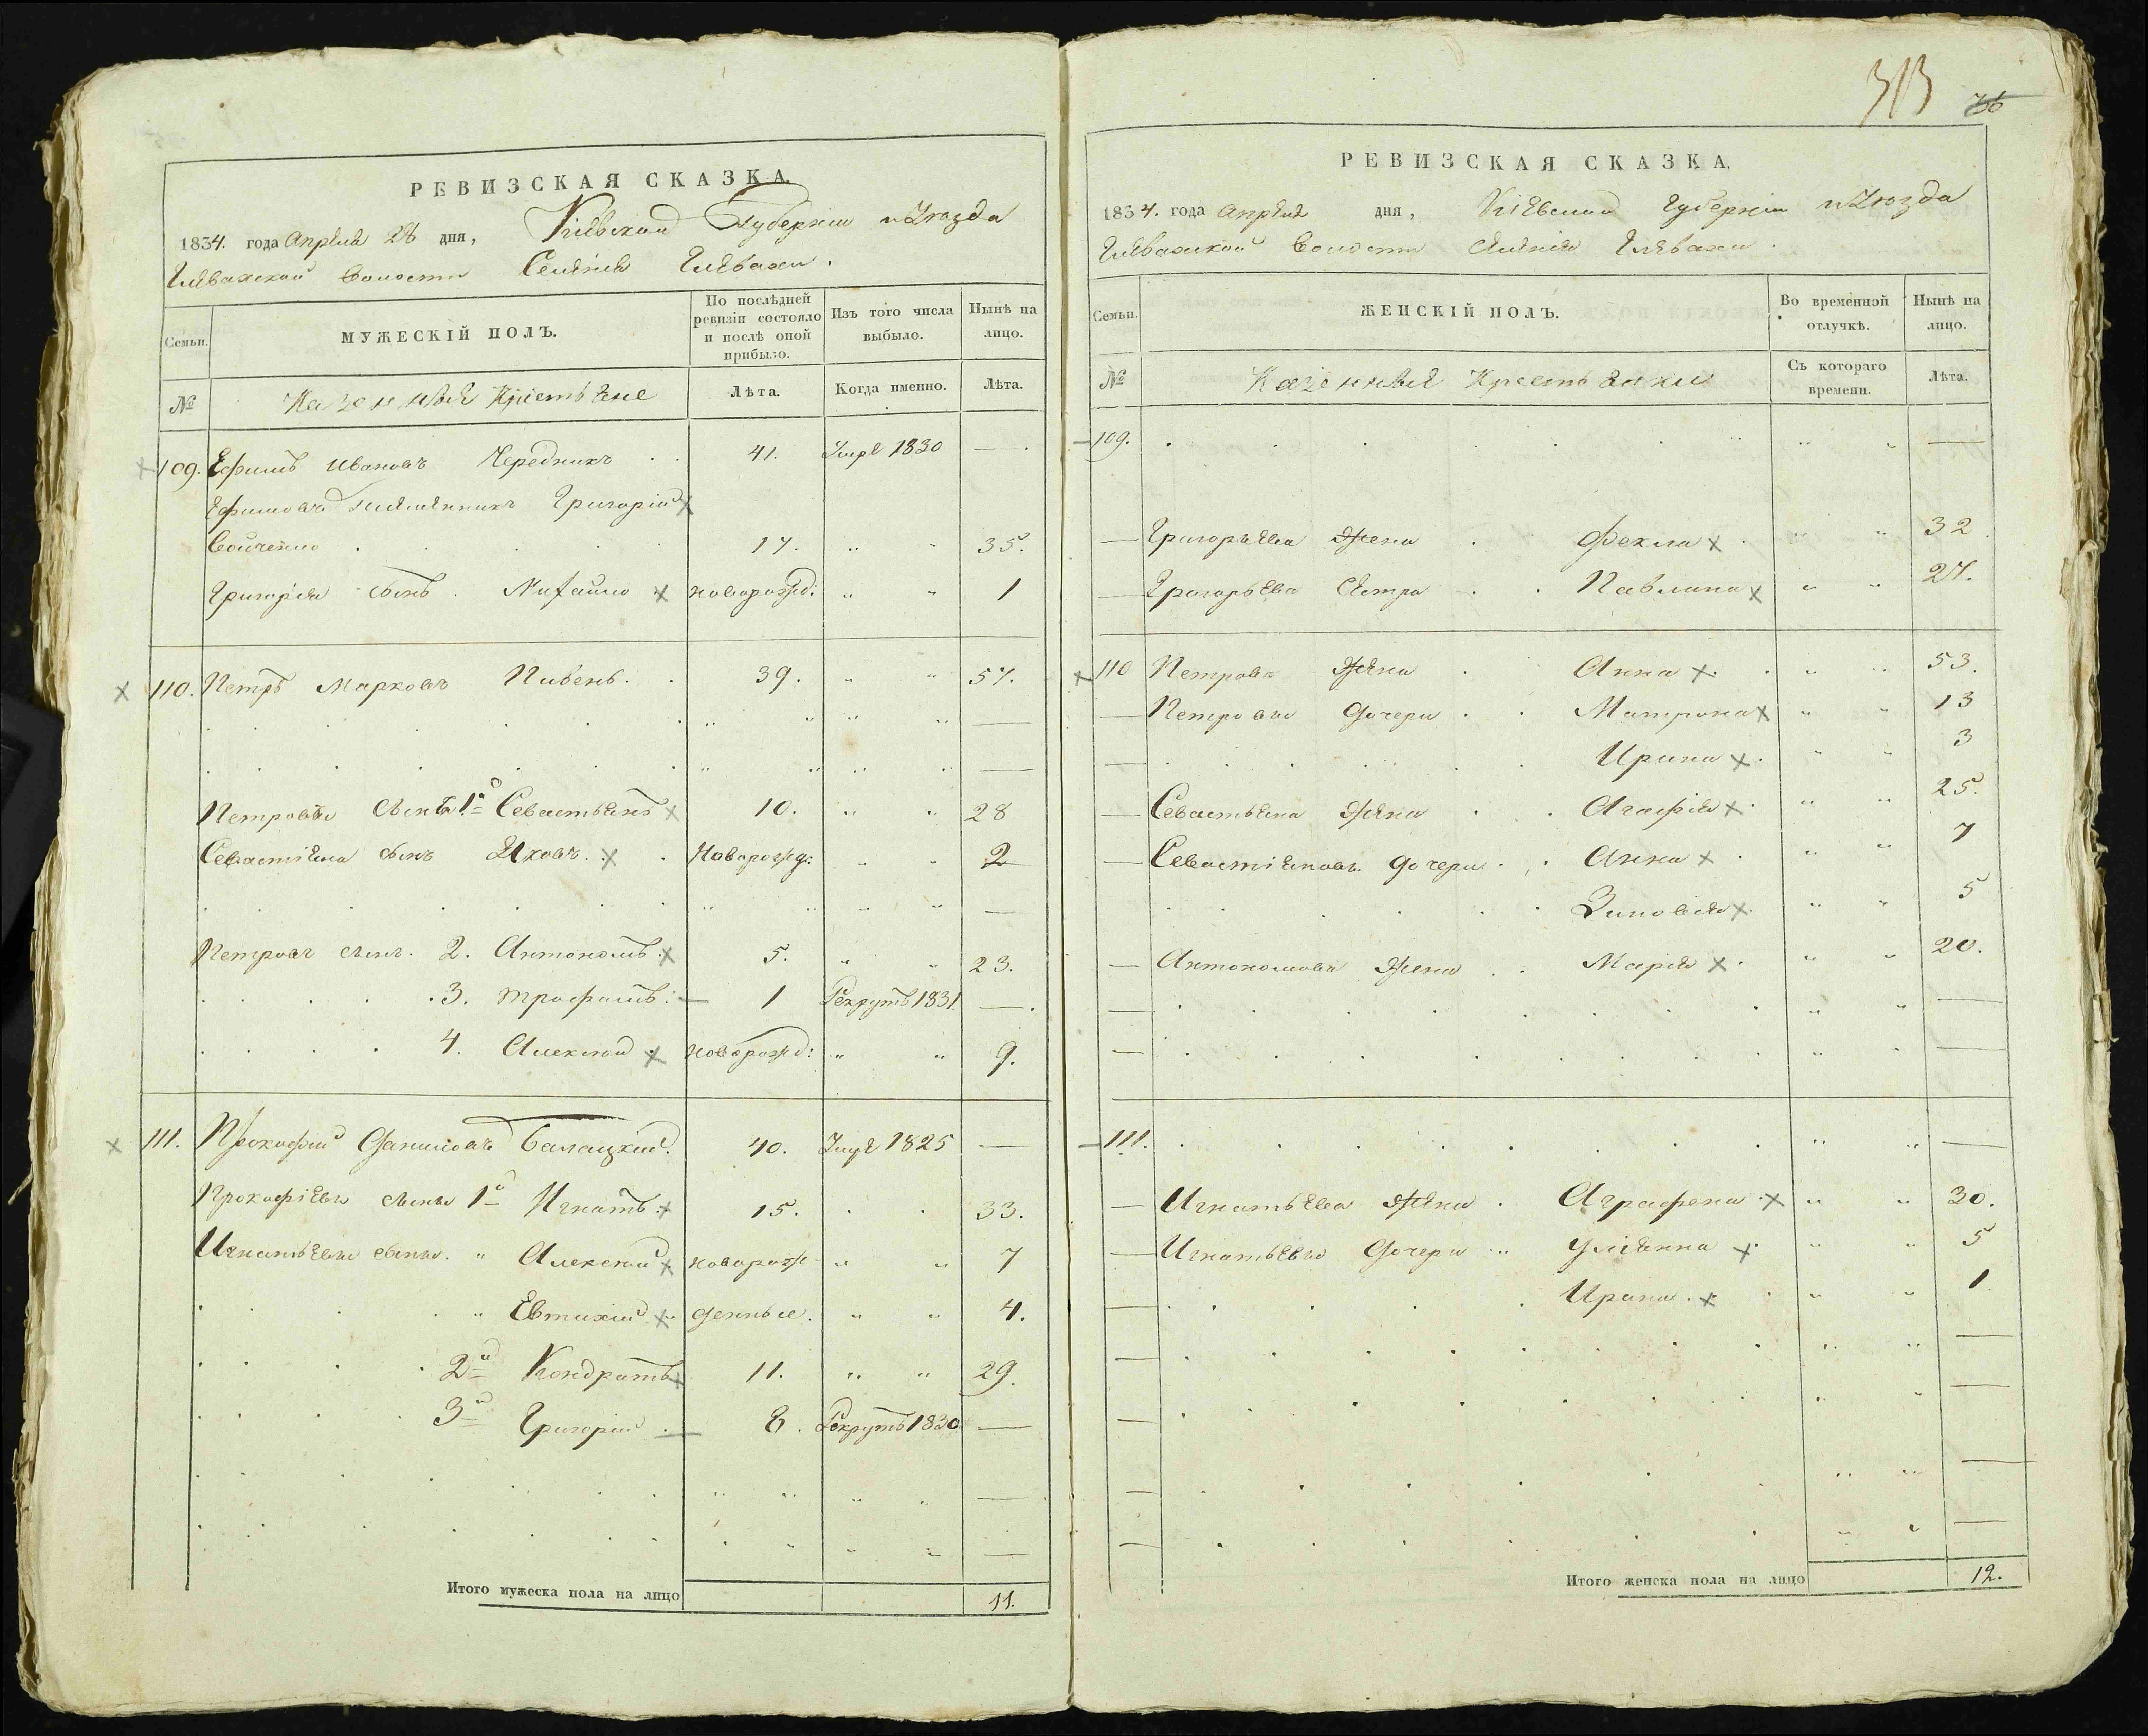 РЕВИЗСКАЯ СКАЗКА.
1834. года Апрѣля 26 дня, Кіевской Губерніи и Уѣзда
Глевахской Волости Селенія Глевахи.
Семьи.
МУЖЕСКІЙ ПОЛЪ.
По послѣдней ревизіи состояло и послѣ оной прибыло.
Изъ того числа выбыло.
Нынѣ на лицо.
№ Казенные Крестьяне Лѣта. Когда именно. Лѣта.
109. Ефимъ Ивановъ Чередникъ 41. Умре 1830 —
Ефимовъ племянникъ Григорій
Бойченко 17. 35.
Григорія сынъ Михайло новорожд: 1
110. Петръ Марковъ Пивень. 39. 57.
Петровы сынъ 1й Севастьянъ 10. 28
Севастіяна сынъ Яковъ. Новорожд: 2
Петровъ сынъ. 2. Антономъ. 5. 23.
3. Трофимъ: 1 Рекрутъ 1831. —
4. Алексѣй новорожд: 9.
111. Прокофій Даниловъ Балацкій. 40. Умре 1825 —
Прокофіевы сыны 1й Игнатъ 15. 33.
Игнатьевы сыны. Алексѣй новорож- 7
Евтихій денные. 4.
2й Кондратъ 11. 29.
3й Григорій 8. Рекрутъ 1830 —
Итого мужеска пола на лицо 11.
313 76
РЕВИЗСКАЯ СКАЗКА.
1834. года Апрѣля дня, Кіевской Губерніи и Уѣзда
Глевахской Волости Селенія Глевахи.
Семьи.
ЖЕНСКІЙ ПОЛЪ.
Во временной отлучкѣ.
Нынѣ на лицо.
№ Казенныя Крестьянки Съ котораго времени. Лѣта.
109. —
Григорьева жена Фекла 32
Григорьева сестра Павлина 27.
110 Петрова жена Анна 53.
Петровы дочери Матрона 13
Ирина 3
Севастьяна жена Агафія 25.
Севастіяновы дочери Анна 7
Зиновія 5
Антономова жена Марія 20.
111. —
Игнатьева жена Аграфена 30.
Игнатьевы дочери Уліянна 5
Ирина. 1
Итого женска пола на лицо 12.